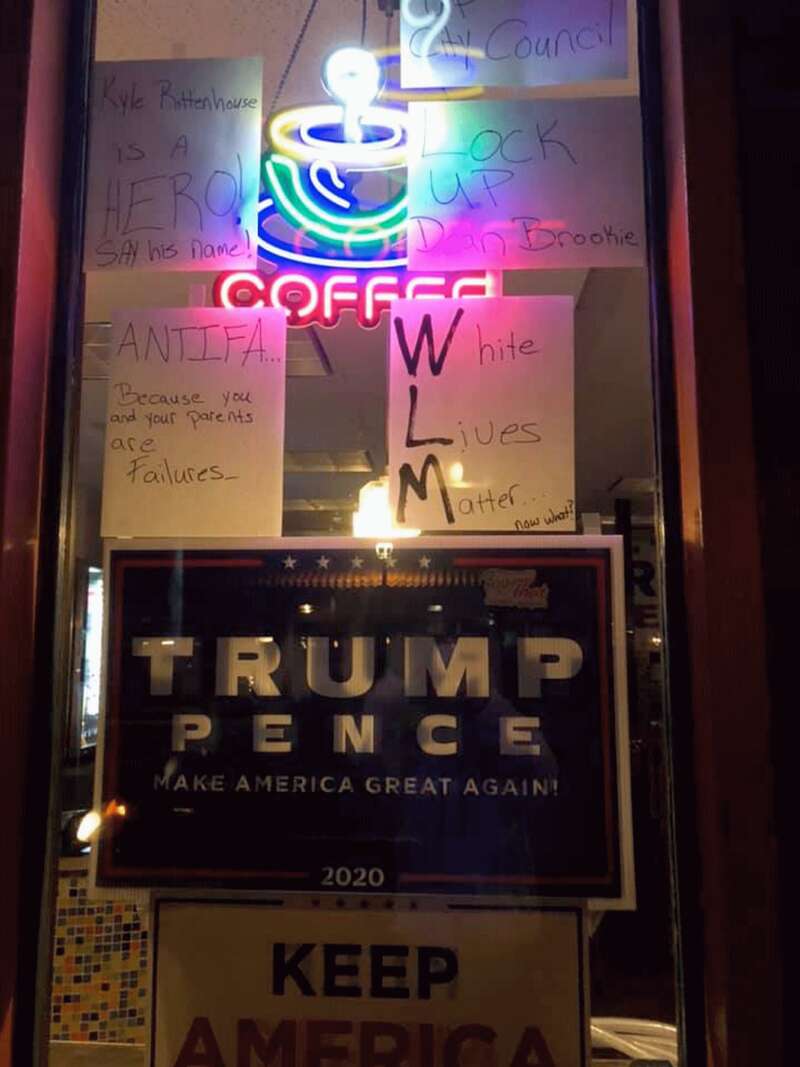 City Council
Kyle Rittenhouse
IS A
HERO!
SAY his name!
LOCK
UP
Dean Brookie
COFFEE
ANTIFA...
Because you
and your parents
are
Failures_
White
Lives
Matter...
now what?
TRUMP
PENCE
MAKE AMERICA GREAT AGAIN!
2020
KEEP
AMERICA